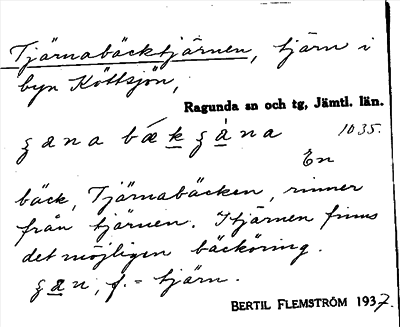 Tjärnabäcktjärnen, tjärn i
byn Köttsjön,
Ragunda sn och tg, Jämtl. län.
1035.
En
bäck, Tjärnabäcken, rinner
från tjärnen. I tjärnen finns
det möjligen bäcköring.
f. = tjärn.
BERTIL FLEMSTRÖM 1937.